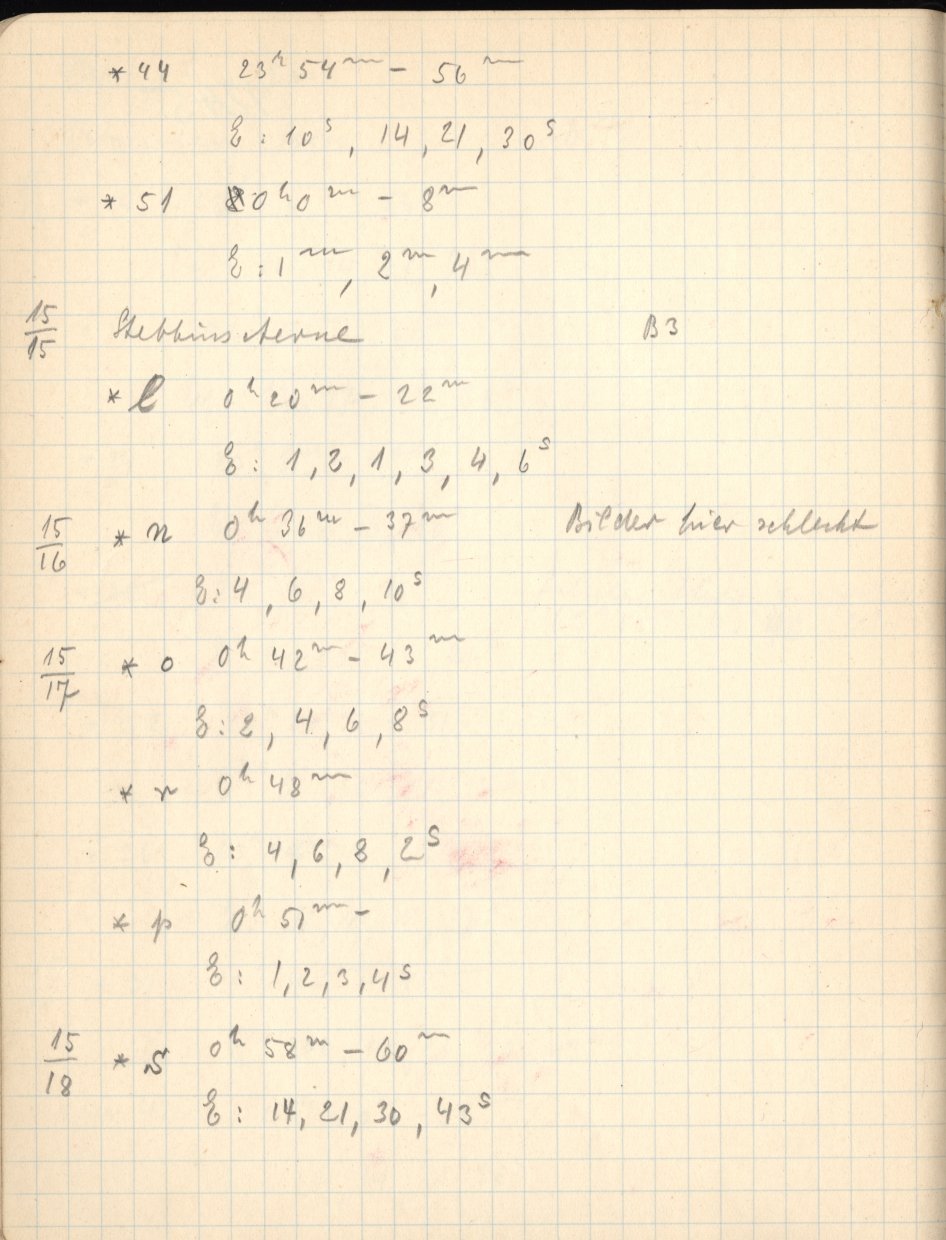 * 44 23h 54m – 56m
E: 10s, 14, 21, 30s
* 51 0h 0m – 8m
E: 1m, 2m, 4m
15/15 Stebbinssterne B3
* l 0h 20m – 22m
E: 1, 2, 1, 3, 4, 6s
15/16 * n 0h 36m – 37m Bilder hier schlecht
E: 4, 6, 8, 10s
15/17 * o 0h 42m – 43m
E: 2, 4, 6, 8s
* r 0h 48m
E: 4, 6, 8, 2s
* p 0h 51m –
E: 1, 2, 3, 4s
15/18 * s 0h 58m – 60m
E: 14, 21, 30, 43s